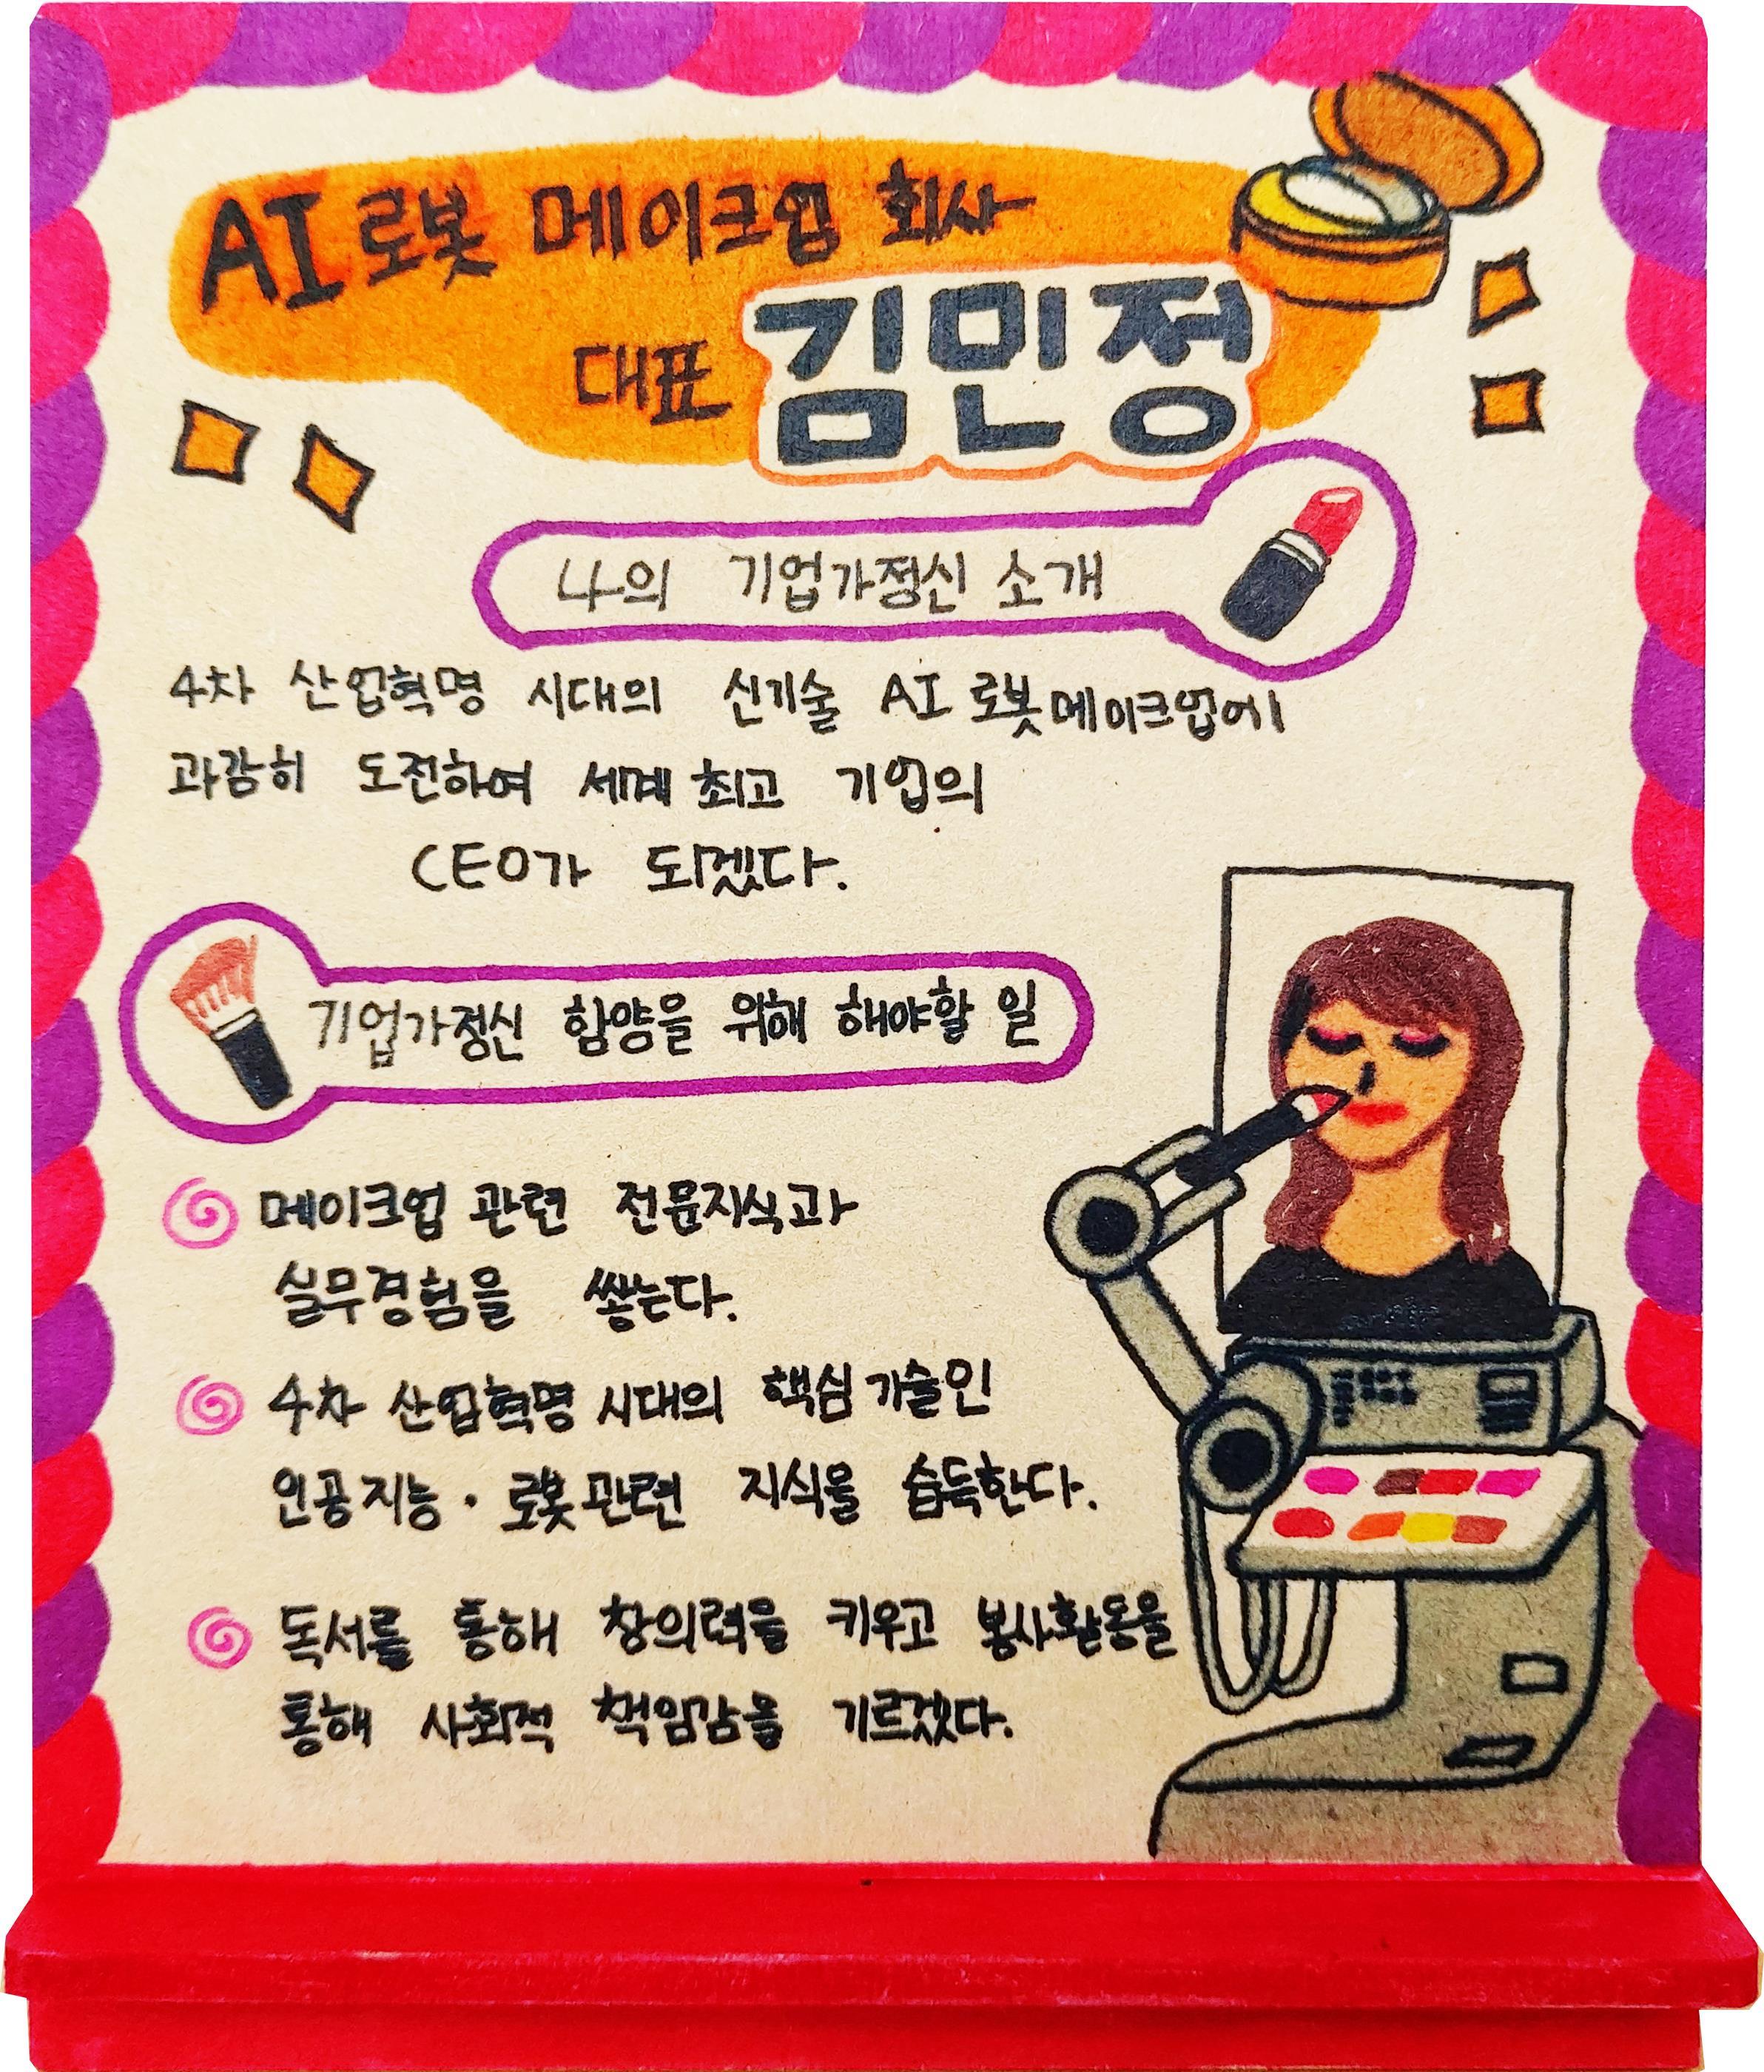 AI 로봇 메이크업 회사
대표 김민정
나의 기업가정신 소개
4차 산업혁명 시대의 신기술 AI 로봇메이크업에
과감히 도전하여 세계 최고 기업의
CEO가 되겠다.
기업가정신 함양을 위해 해야할 일
메이크업 관련 전문지식과
실무경험을 쌓는다.
4차 산업혁명 시대의 핵심 기술인
인공지능·로봇관련 지식을 습득한다.
독서를 통해 창의력을 키우고 봉사활동을
통해 사회적 책임감을 기르겠다.